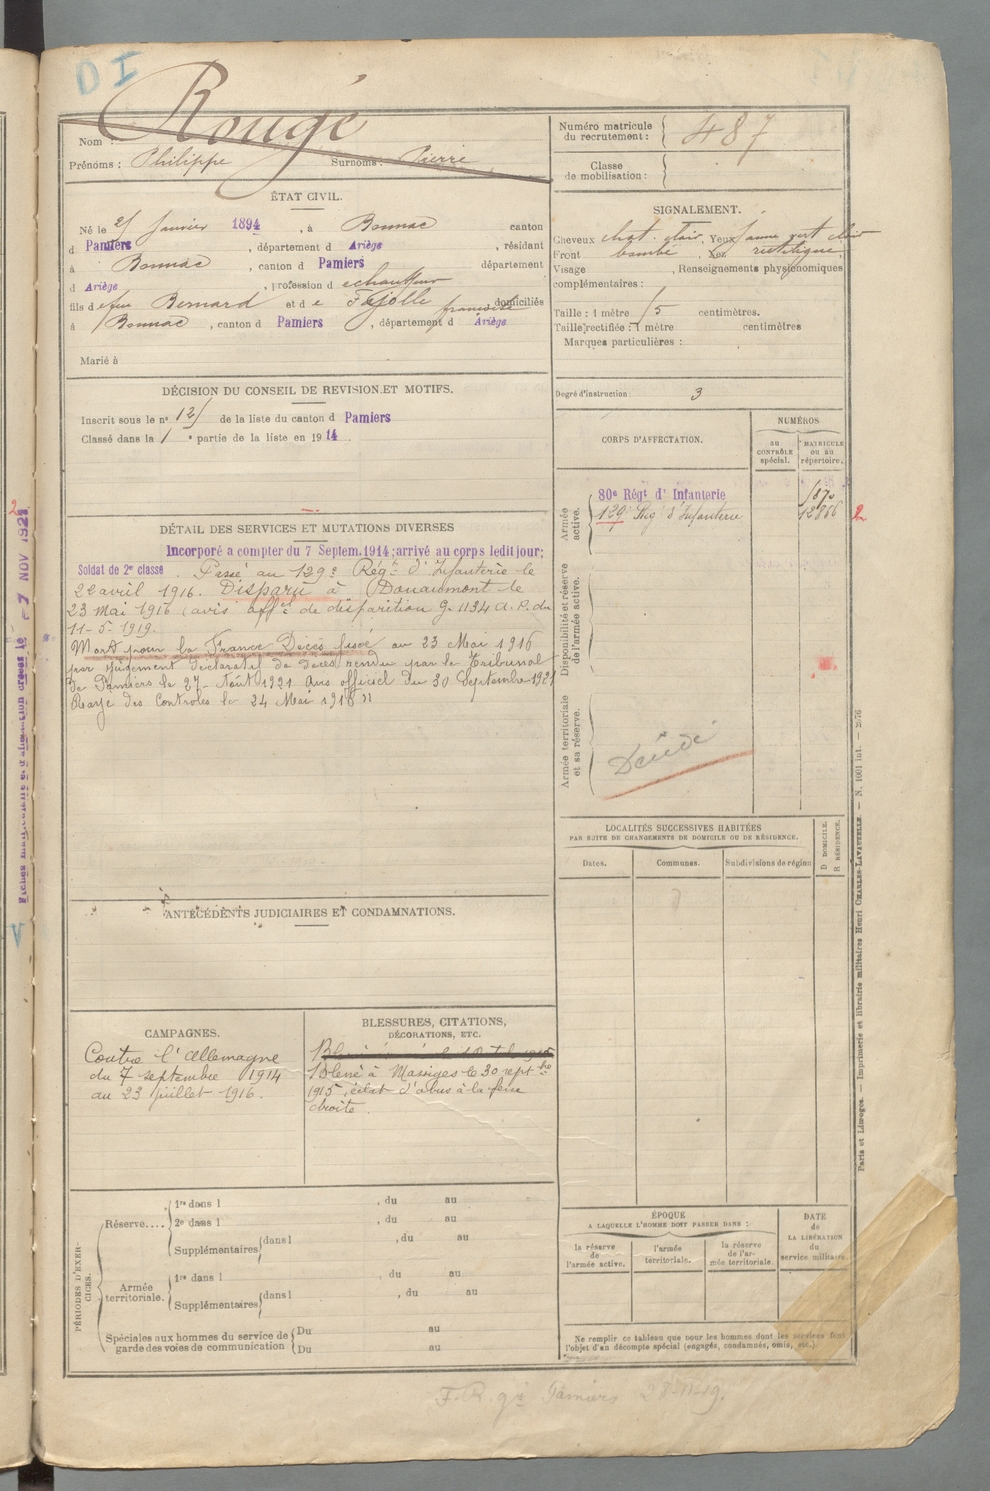 D I
Rougé
Nom :
Prénoms : Philippe Surnoms : Pierre
Numéro matricule du recrutement : 487
Classe de mobilisation :
ÉTAT CIVIL.
Né le janvier 1894, à Bonnac canton
d Pamiers, département d Ariège, résidant
à Bonnac, canton d Pamiers département
d Ariège, profession d echauffeur
fils de feu Bernard et d e Fajolle françoise domiciliés
à Bonnac, canton d Pamiers, département d Ariège
Marié à
SIGNALEMENT.
Cheveux chat. clair, Yeux jaune vert clair
Front bombé, Nez rectiligne,
Visage , Renseignements physionomiques
complémentaires :
Taille : 1 mètre centimètres.
Taille rectifiée : 1 mètre centimètres
Marques particulières :
Degré d'instruction : 3
DÉCISION DU CONSEIL DE REVISION ET MOTIFS.
Inscrit sous le nº de la liste du canton d Pamiers
Classé dans la 1 e partie de la liste en 1914.
CORPS D'AFFECTATION.
NUMÉROS
au CONTRÔLE spécial.
MATRICULE ou au répertoire.
Armée active.
80e Régt d' Infanterie
129e Rég d'Infanterie 2
Disponibilité et réserve de l'armée active.
Armée territoriale et sa réserve.
Décédé
DÉTAIL DES SERVICES ET MUTATIONS DIVERSES
Incorporé a compter du 7 Septem. 1914; arrivé au corps ledit jour;
Soldat de 2e classe. Passé au 129e Régt d'Infanterie le
22 avril 1916. Disparu à Douaumont le
23 Mai 1916 (avis offel de disparition G. 1134 d. P. du
11-5-1919.
Mort pour la France Décès fixé au 23 Mai 1916
par jugement déclaratif de décès rendu par le Tribunal
de Pamiers le 27 Août 1921 Avis officiel du 30 Septembre 1921
Rayé des Contrôles le 24 Mai 1916
LOCALITÉS SUCCESSIVES HABITÉES
PAR SUITE DE CHANGEMENTS DE DOMICILE OU DE RÉSIDENCE.
Dates. Communes. Subdivisions de région
D DOMICILE.
R RÉSIDENCE.
ANTÉCÉDENTS JUDICIAIRES ET CONDAMNATIONS.
CAMPAGNES.
Contre l'Allemagne
du 7 septembre 1914
au 23 juillet 1916.
BLESSURES, CITATIONS,
DÉCORATIONS, ETC.
Blessé à Massiges le 30 sept bre
1915, éclat d'obus à la fesse
droite.
PÉRIODES D'EXERCICES.
Réserve....
1re dans l , du au
2e dans l , du au
Supplémentaires dans l , du au
Armée territoriale.
1re dans l , du au
Supplémentaires dans l , du au
Spéciales aux hommes du service de garde des voies de communication
Du au
Du au
ÉPOQUE
A LAQUELLE L'HOMME DOIT PASSER DANS :
la réserve de l'armée active.
l'armée territoriale.
la réserve de l'armée territoriale.
DATE de LA LIBÉRATION du service militaire.
Ne remplir ce tableau que pour les hommes dont les services font
l'objet d'un décompte spécial (engagés, condamnés, omis, etc.)
Paris et Limoges. — Imprimerie et librairie militaires Henri CHARLES-LAVAUZELLE. — N. 1001 int. — 2976